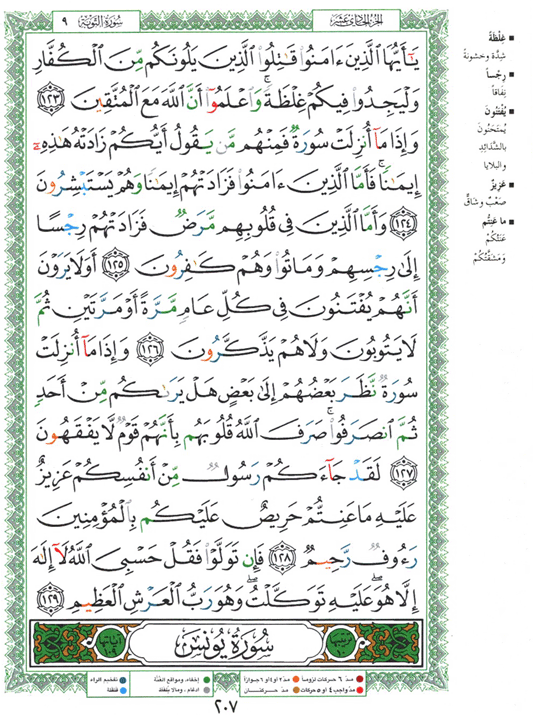 الجزء الحادي عشر
سورة التوبة ٩
يَٰٓأَيُّهَا ٱلَّذِينَ ءَامَنُوا۟ قَٰتِلُوا۟ ٱلَّذِينَ يَلُونَكُم مِّنَ ٱلْكُفَّارِ
وَلْيَجِدُوا۟ فِيكُمْ غِلْظَةً ۚ وَٱعْلَمُوٓا۟ أَنَّ ٱللَّهَ مَعَ ٱلْمُتَّقِينَ ١٢٣
وَإِذَا مَآ أُنزِلَتْ سُورَةٌ فَمِنْهُم مَّن يَقُولُ أَيُّكُمْ زَادَتْهُ هَٰذِهِۦٓ
إِيمَٰنًا ۚ فَأَمَّا ٱلَّذِينَ ءَامَنُوا۟ فَزَادَتْهُمْ إِيمَٰنًا وَهُمْ يَسْتَبْشِرُونَ
١٢٤ وَأَمَّا ٱلَّذِينَ فِى قُلُوبِهِم مَّرَضٌ فَزَادَتْهُمْ رِجْسًا
إِلَىٰ رِجْسِهِمْ وَمَاتُوا۟ وَهُمْ كَٰفِرُونَ ١٢٥ أَوَلَا يَرَوْنَ
أَنَّهُمْ يُفْتَنُونَ فِى كُلِّ عَامٍ مَّرَّةً أَوْ مَرَّتَيْنِ ثُمَّ
لَا يَتُوبُونَ وَلَا هُمْ يَذَّكَّرُونَ ١٢٦ وَإِذَا مَآ أُنزِلَتْ
سُورَةٌ نَّظَرَ بَعْضُهُمْ إِلَىٰ بَعْضٍ هَلْ يَرَىٰكُم مِّنْ أَحَدٍ
ثُمَّ ٱنصَرَفُوا۟ ۚ صَرَفَ ٱللَّهُ قُلُوبَهُم بِأَنَّهُمْ قَوْمٌ لَّا يَفْقَهُونَ
١٢٧ لَقَدْ جَآءَكُمْ رَسُولٌ مِّنْ أَنفُسِكُمْ عَزِيزٌ
عَلَيْهِ مَا عَنِتُّمْ حَرِيصٌ عَلَيْكُم بِٱلْمُؤْمِنِينَ
رَءُوفٌ رَّحِيمٌ ١٢٨ فَإِن تَوَلَّوْا۟ فَقُلْ حَسْبِىَ ٱللَّهُ لَآ إِلَٰهَ
إِلَّا هُوَ ۖ عَلَيْهِ تَوَكَّلْتُ ۖ وَهُوَ رَبُّ ٱلْعَرْشِ ٱلْعَظِيمِ ١٢٩
سُورَةُ يُونُسَ
■ غِلْظَةً
شِدَّة وخشونةً
■ رِجْساً
نِفَاقاً
■ يُفْتَنُونَ
يُمتَحَنُونَ
بالشَّدَائِدِ
والبلايا
■ عَزِيزٌ
صَعْبٌ وشَاقٌّ
■ مَا عَنِتُّمْ
عَنَتُكُمْ
وَمَشَقَّتُكُمْ
مدّ ٦ حركات لزوماً مدّ ٢ أو ٤ أو ٦ جوازاً إخفاء، ومواقع الغُنَّة تفخيم الراء
مدّ واجب ٤ أو ٥ حركات مدّ حركتان ادغام، وما لا يُلفظ قلقلة
٢٠٧